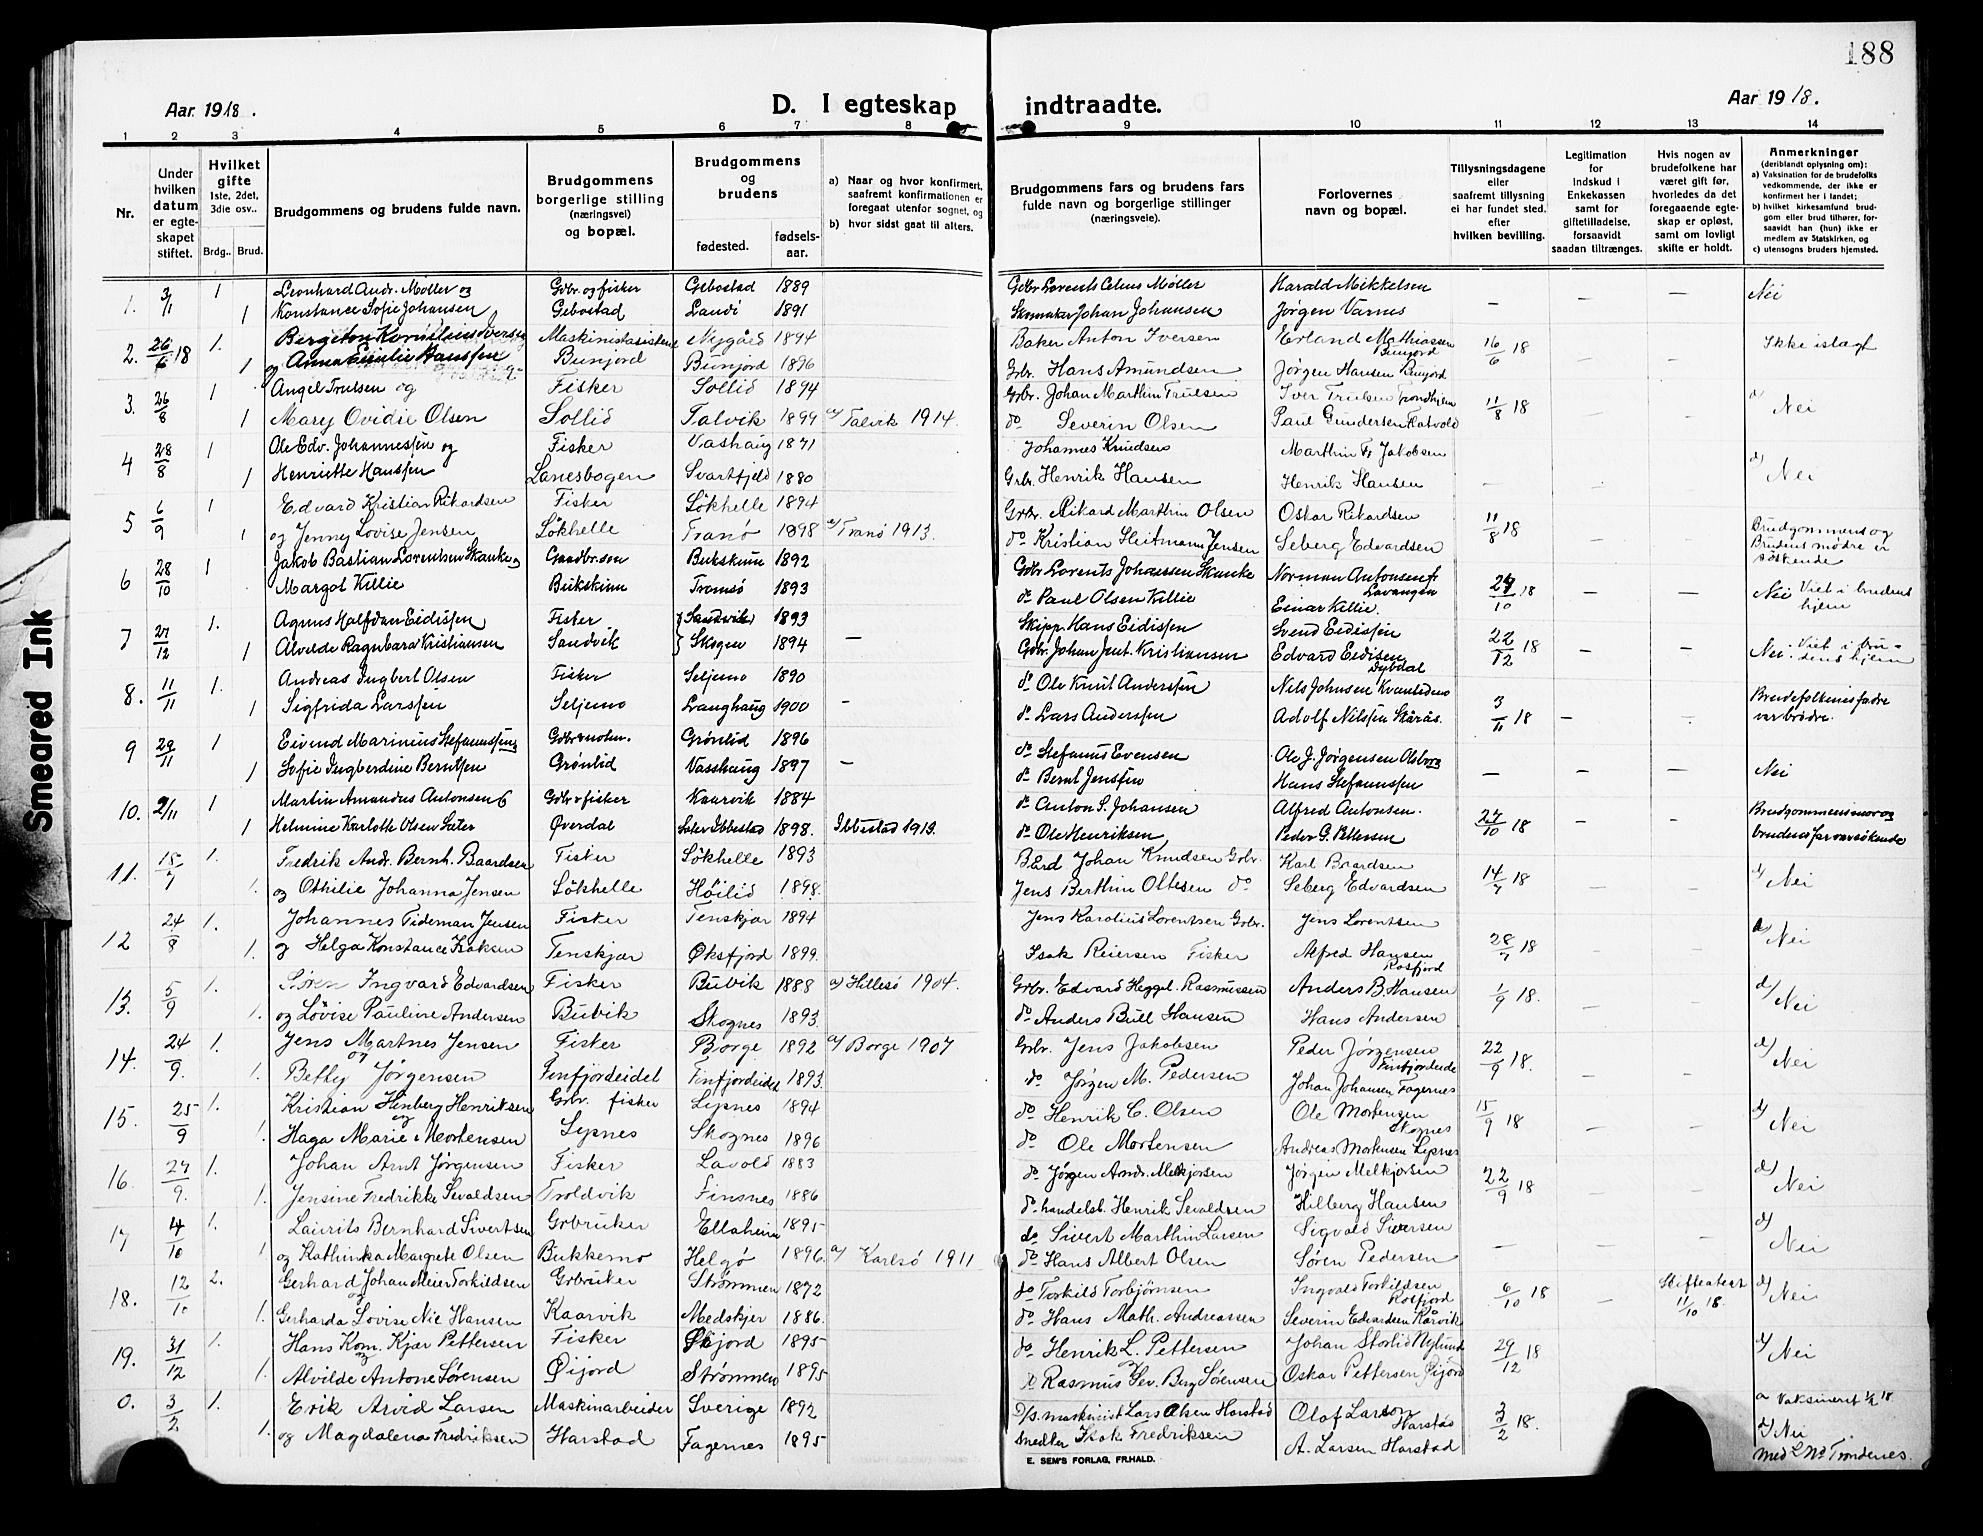 188
Aar 1918.
D. I egteskap indtraadte.
Aar 1918.
1 2 3 4 5 6 7 8 9 10 11 12 13 14
Nr.
Under hvilken datum er egteskapet stiftet.
Hvilket gifte 1ste, 2det, 3die osv..
Brdg.. Brud.
Brudgommens og brudens fulde navn.
Brudgommens borgerlige stilling (næringsvei) og bopæl.
Brudgommens og brudens
fødested. fødselsaar.
a) Naar og hvor konfirmert, saafremt konfirmationen er foregaat utenfor sognet, og
b) hvor sidst gaat til alters.
Brudgommens fars og brudens fars fulde navn og borgerlige stillinger (næringsveie).
Forlovernes navn og bopæl.
Tillysningsdagene eller saafremt tillysning ei har fundet sted. efter hvilken bevilling.
Legitimation for Indskud i Enkekassen samt for giftetilladelse, forsaavidt saadan tiltrænges.
Hvis nogen av brudefolkene har været gift før, hvorledes da det foregaaende egteskap er opløst, samt om lovligt skifte er holdt.
Anmerkninger (deriblandt oplysning om): a) Vaksination for de brudefolks vedkommende, der ikke er konfirmert her i landet; b) hvilket kirkesamfund brudgom eller brud tilhører, forsaavidt han (hun) ikke er medlem av Statskirken, og c) utensogns bruders hjemsted.
1. 3/11 1 Leonhard Andr. Møller og Gdbr. og fisker Gebostad 1889 Gdbr. Lorents Møller Harald Mikkelsen — — — Nei
1 Konstance Sofie Johansen Gebostad 1891 Skomaker Johan Johansen Jørgen Varnes
2. 18 1. Bergeton Kornelius Iversen Maskinistassistent Nygård 1894 Baker Anton Iversen Erland Mathiassen Bunjord 16/6 18 — — Ikke istagt
1 og Anna Emilie Hanssen Bunjord Bunjord 1896 Grbr. Hans Amundsen Jørgen Hansen Bunjord
3. 26/8 1 Angel Trulsen og Fisker Sollid 1894 Grbr. Johan Marthin Trulsen Iver Trulsen Trondhjem 11/8 18 — — Nei
1 Mary Ovidie Olsen Sollid Talvik 1899 a) Talvik 1914. do Severin Olsen Paul Gundersen
4 28/8 1 Ole Edv. Johannessen og Fisker Vashaug 1871 Johannes Knudsen Marthin Fr Jakobsen — — — Nei
1 Henriette Hanssen Lanesbogen Svartfjeld 1880 Grbr. Henrik Hansen Henrik Hansen
5 6/9 1 Edvard Kristian Rikardsen Fisker Lökhelle 1894 Grbr. Rikard Marthin Olsen Oskar Rikardsen 11/8 18 — — Brudgommens og Brudens mødre er søskende
1 og Jenny Lovise Jensen Lökhelle Tranø 1898 a) Tranö 1913. do Kristian Heitmann Jensen Seberg Edvardsen
6 28/10 1 Jakob Bastian Lorentsen Skanke og Gaardbr.søn Bukskinn 1892 Gdbr. Lorents Johanssen Skanke Norman Antonsen Lavangen 18 — — Nei Viet i brudens hjem
Margot Killie Bukskinn Tromsø 1893 do Paul Olsen Killie Einar Killie.
7 27/12 1. Agnus Halfdan Eidissen Fisker Sandvik 1893 Skipp. Hans Eidissen Svend Eidissen 22/12 18 — — Nei. Viet i brudens hjem
1 Alvilde Ragnbara Kristiansen Sandvik Skogen 1894 — Gdbr. Johan Jent. Kristiansen Edvard Eidisen Dybdal
8. 11/11 1. Andreas Ingbert Olsen Fisker Seljemo 1890 do Ole Knut Anderssen Nils Johnsen 3/11 18 — — Brudefolkenes fædre var brødre.
1 Sigfrida Larssen Seljemo Langhaug 1900 — do Lars Anderssen Adolf Nilssen Skårås.
9 29/11 1 Eivind Marinius Stefanussen Grønlid 1896 do Stefanus Evensen Ole J. Jørgensen — — — Nei
1 Sofie Ingberdine Berntsen Grønlid Vasshaug 1897 — do Bernt Jenssen Hans Stefanussen
10. 2/11 1 Martin Amandus Antonsen Gdbr & fisker Kaarvik 1884 do Anton S. Johansen Alfred Antonsen. 27/10 18 — — Brudgommens mor og brudens far var søskende
1 Helmine Karlotte Olsen Sæter Øverdal Sæter Ibbestad 1898. Ibbestad 1913. do Ole Henriksen Peder G. Pettersen
11. 15/7 1. Fredrik Andr. Bernh. Baardsen Fisker Lökhelle 1893 Bård Johan Knudsen Grbr. Karl Baardsen 14/7 18 — — Nei
1. og Othilie Johanna Jensen Lökhelle Höilid 1898. Jens Berthin Ottesen do Seberg Edvardsen
12 24/8 1. Johannes Tideman Jensen Fisker Tenskjær 1894 Jens Karolius Lorentsen Grbr. Jens Lorentsen 28/7 18 — — Nei
1. og Helga Konstance Isaksen Tenskjær Øksfjord 1899. Isak Reiersen Fisker Alfred Hansen Rosfjord
13. 5/9 1. Sören Ingvard Edvardsen Fisker Bubvik 1888 a) Hillesö 1904. Grbr. Edvard Heggel. Rasmussen Anders B. Hansen 1/9 18. — — Nei
1. og Lövise Pauline Andersen Bubvik Skognes 1893. do Anders Bull Hansen Hans Andersen
14. 24/9. 1. Jens Martnes Jensen og Fisker Borge 1892 a) Borge 1907 Grbr. Jens Jakobsen Peder Jörgensen Finfjordeide 22/9 18. — — Nei
1. Betty Jørgensen Finfjordeidet Finfjordeidet 1893. do Jørgen M. Pedersen Johan Johansen Fagernes
15. 25/9 1. Kristian Hinberg Henriksen og Grbr. fisker Lysnes 1894 do Henrik C. Olsen Ole Mortensen Skognes 15/9 18 — — Nei
1. Haga Marie Mortensen Lysnes Skognes 1896 do Ole Mortensen Andreas Mortensen Lysnes
16. 1. Johan Arnt Jørgensen Fisker Lavold 1883 do Jørgen Andr. Melkjorsen Jørgen Melkjorsen 22/9 18 — — Nei
1. Jensine Fredrikke Sevaldsen Troldvik Finsnes 1886 do handelsb. Henrik Sevaldsen Hilberg Hansen
17 4/10 1. Laurits Bernhard Sivertsen Grbruker Ellaheim 1895 do Sivert Marthin Larsen Sigvald Siversen — — — Nei
1. og Kathinka Margrete Olsen Bukkemo Helgö 1896. a) Karlsö 1911 do Hans Albert Olsen Søren Pedersen
18. 12/10 2. Gerhard Johan Meier Torkildsen og Grbruker Strömmen 1872 do Torkild Torbjørnsen Ingvald Torkildsen Rosfjord 6/10 18 — Skifteatest 11/10 18. Nei
1. Gerharda Lovise Nie Hansen Kaarvik Medskjer 1886. do Hans Math. Andreassen Severin Edvardsen Kårvik
19. 31/12 1. Hans Korn. Kjær Pettersen og Fisker Øijord 1895 do Henrik L. Pettersen Johan Storlid Nylund 29/12 18 — — Nei
1. Alvilde Antone Sørensen Øijord Strømmen 1895 do Rasmus Sev. Berg Sørensen Oskar Pettersen Øijord
0. 3/2 1. Erik Arvid Larsen Maskinarbeider Sverige 1892 D/s. maskinist Lars Olsen Harstad Olof Larson Harstad 3/2 18. — — a Vaksineret
1. og Magdalena Fredriksen Harstad Fagernes 1895 Snedker Isak Fredriksen A. Larsen Harstad Nei
med Trondenes.
E. SEM'S FORLAG, FR.HALD.
Smeared Ink